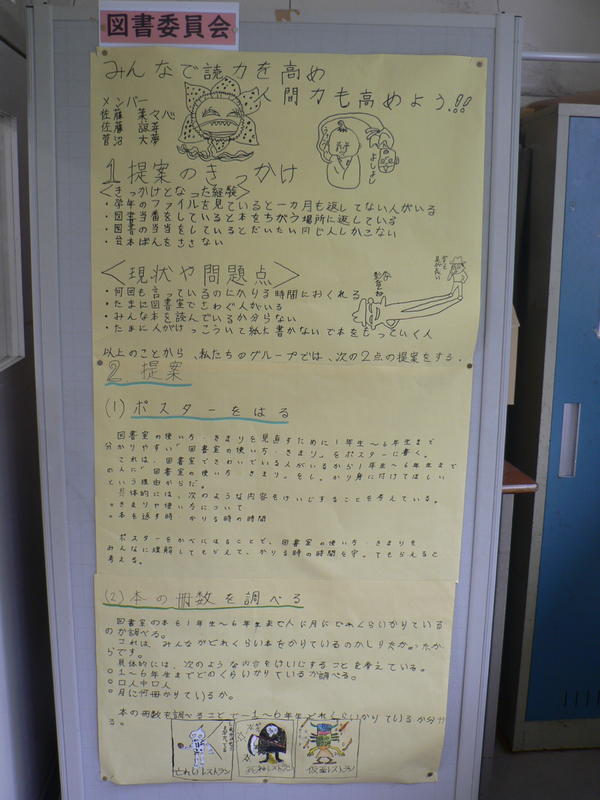 図書委員会
みんなで読力を高め
人間力も高めよう!!
メンバー
佐藤 菜々心
佐藤
菅沼 大夢
よしよし
1提案のきっかけ
<きっかけとなった経験>
・学年のファイルを見ていると一カ月も返してない人がいる
・図書当番をしていると本をちがう場所に返している
・図書の当当をしているとだいたい同じ人しかこない
・台本ばんをささない
<現状や問題点>
・何回も言っているのにかりる時間におくれる
・たまに図書室でさわぐ人がいる
・みんな本を読んでいるか分らない
・たまに人がけっこういて紙に書かないで本をもっていく人
以上のことから、私たちのグループでは、次の2点の提案をする。
2.提案
(1)ポスターをはる
図書室の使い方・きまりを見直すために1年生〜6年生まで
分かりやすい「図書室の使い方・きまり」をポスターに書く。
これは、図書室でさわいでいる人がいるから1年生〜6年生まで
の人に「図書室の使い方・きまり」をしっかり身に付けてほしい
という理由からだ。
具体的には、次のような内容をけいじすることを考えている。
○きまりや使い方について
○本を返す時・かりる時の時間
ポスターをかべにはることで、図書室の使い方・きまりを
みんなに理解してもらえて、かりる時の時間を守ってもらえると
考える。
(2)本の冊数を調べる
図書室の本を1年生〜6年生まで人に月にどれくらいかりている
のか調べる。
これは、みんながどれくらい本をかりているのかしりたかったか
らです。
具体的には、次のような内容をけいじすることを考えている。
○1〜6年生までどのくらいかりているか調べる。
○口人中口人
○月に何冊かりているか。
本の冊数を調べることで1〜6年生どれくらいかりているか分か
る。
レストラン
死神レストラン
仮面レストラン